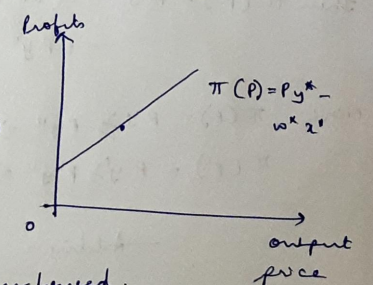 Profits
π (P) = Py* -
w* x'
0
output
price